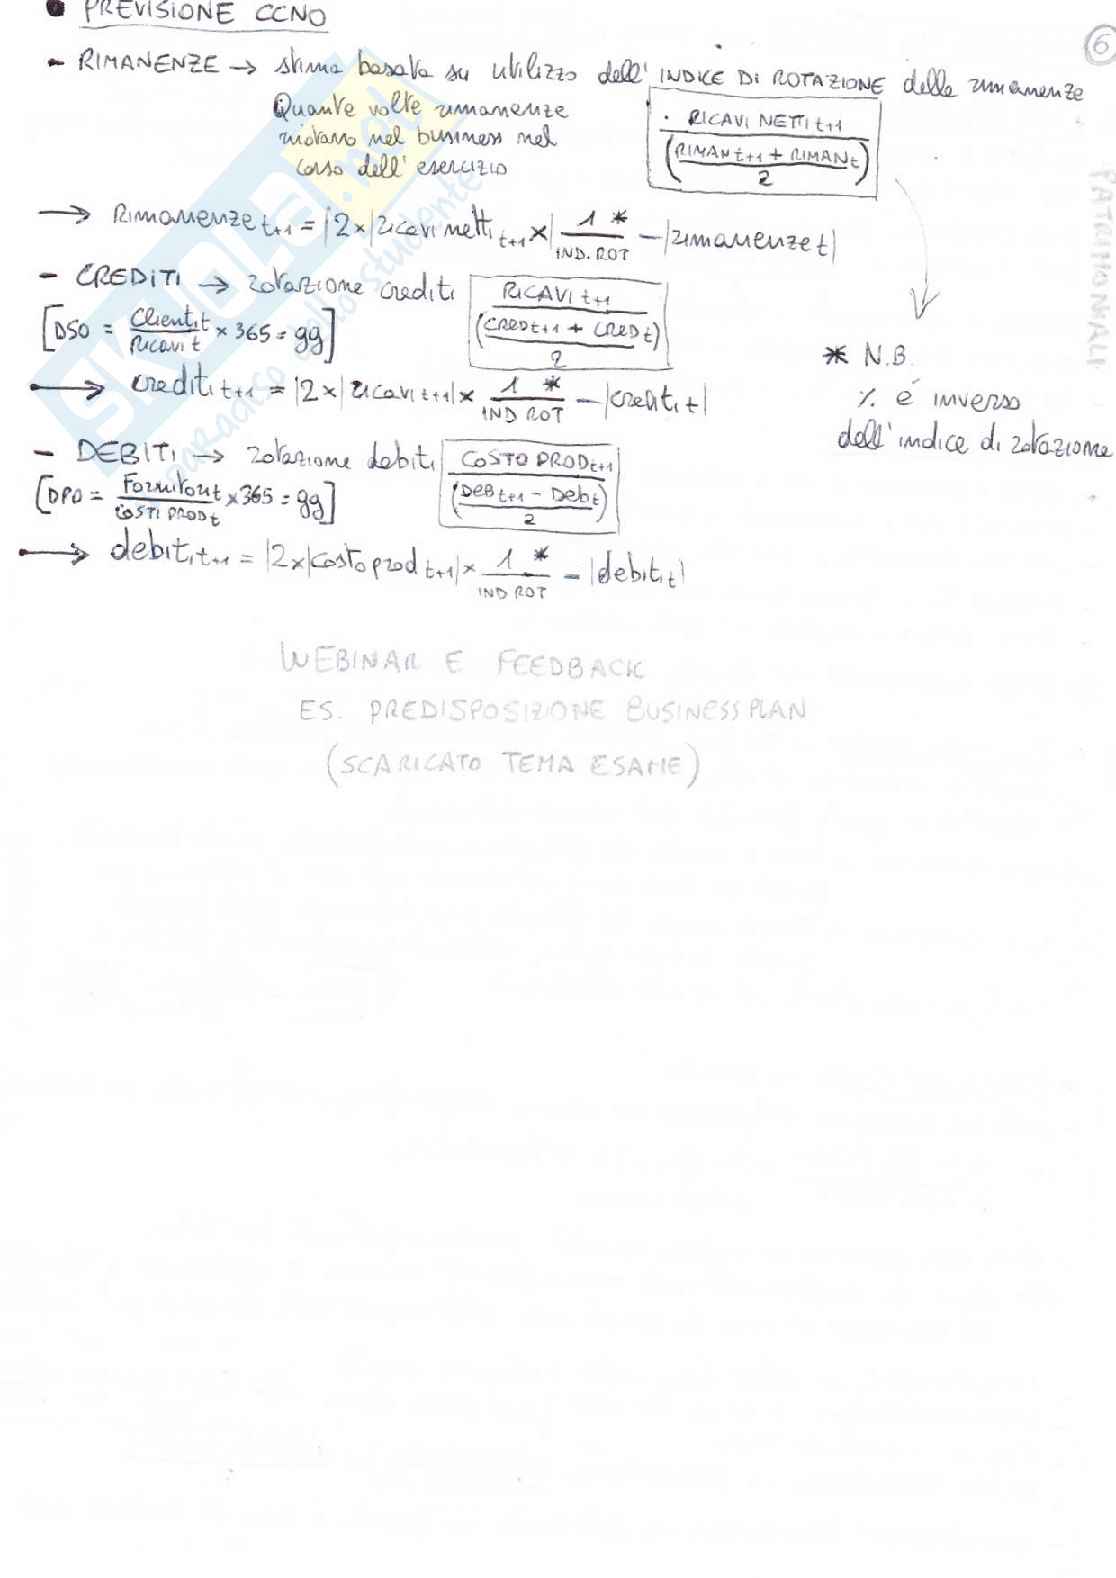 • PREVISIONE CCNO
6
- RIMANENZE → stima basata su utilizzo dell'INDICE DI ROTAZIONE delle rimanenze
Quante volte rimanenze
ruotano nel business nel
corso dell'esercizio
RICAVI NETTI t+1
(RIMAN t+1 + RIMAN t)
2
→ Rimanenze t+1 = |2×|ricavi netti t+1 ×| 1 * / IND. ROT - |rimanenze t|
- CREDITI → rotazione crediti
RICAVI t+1
(CRED t+1 + CRED t)
2
[DSO = Clienti t / Ricavi t × 365 = gg]
→ crediti t+1 = |2×|ricavi t+1|× 1 * / IND ROT - |crediti t|
* N.B.
٪ é inverso
dell'indice di rotazione
- DEBITI → rotazione debiti
COSTO PROD t+1
(DEB t+1 - Deb t)
2
[DPO = Fornitori t / COSTI PROD t ×365 = gg]
→ debiti t+1 = |2×|costo prod t+1|× 1 * / IND ROT - |debiti t|
PATRIMONIALI
WEBINAR E FEEDBACK
ES. PREDISPOSIZIONE BUSINESS PLAN
(SCARICATO TEMA ESAME)
SKUOLA.net
paradiso dello studente